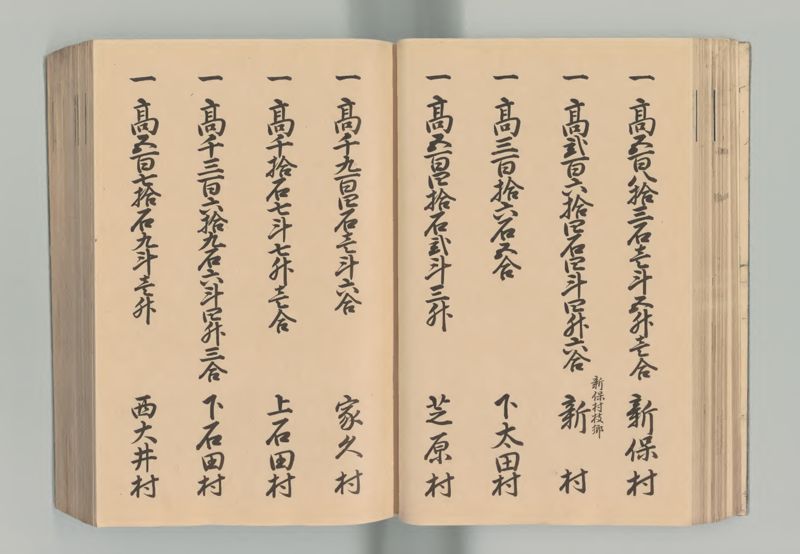 一 高五百八拾三石壱斗五升壱合 新保村
新保村枝郷
一 高弐百六拾四石四斗四升六合 新村
一 高三百拾六石五合 下太田村
一 高五百四拾石弐斗三升 芝原村
一 高千九百四石壱斗六合 家久村
一 高千拾石七斗七升壱合 上石田村
一 高千三百六拾九石六斗四升三合 下石田村
一 高五百七拾石九斗壱升 西大井村